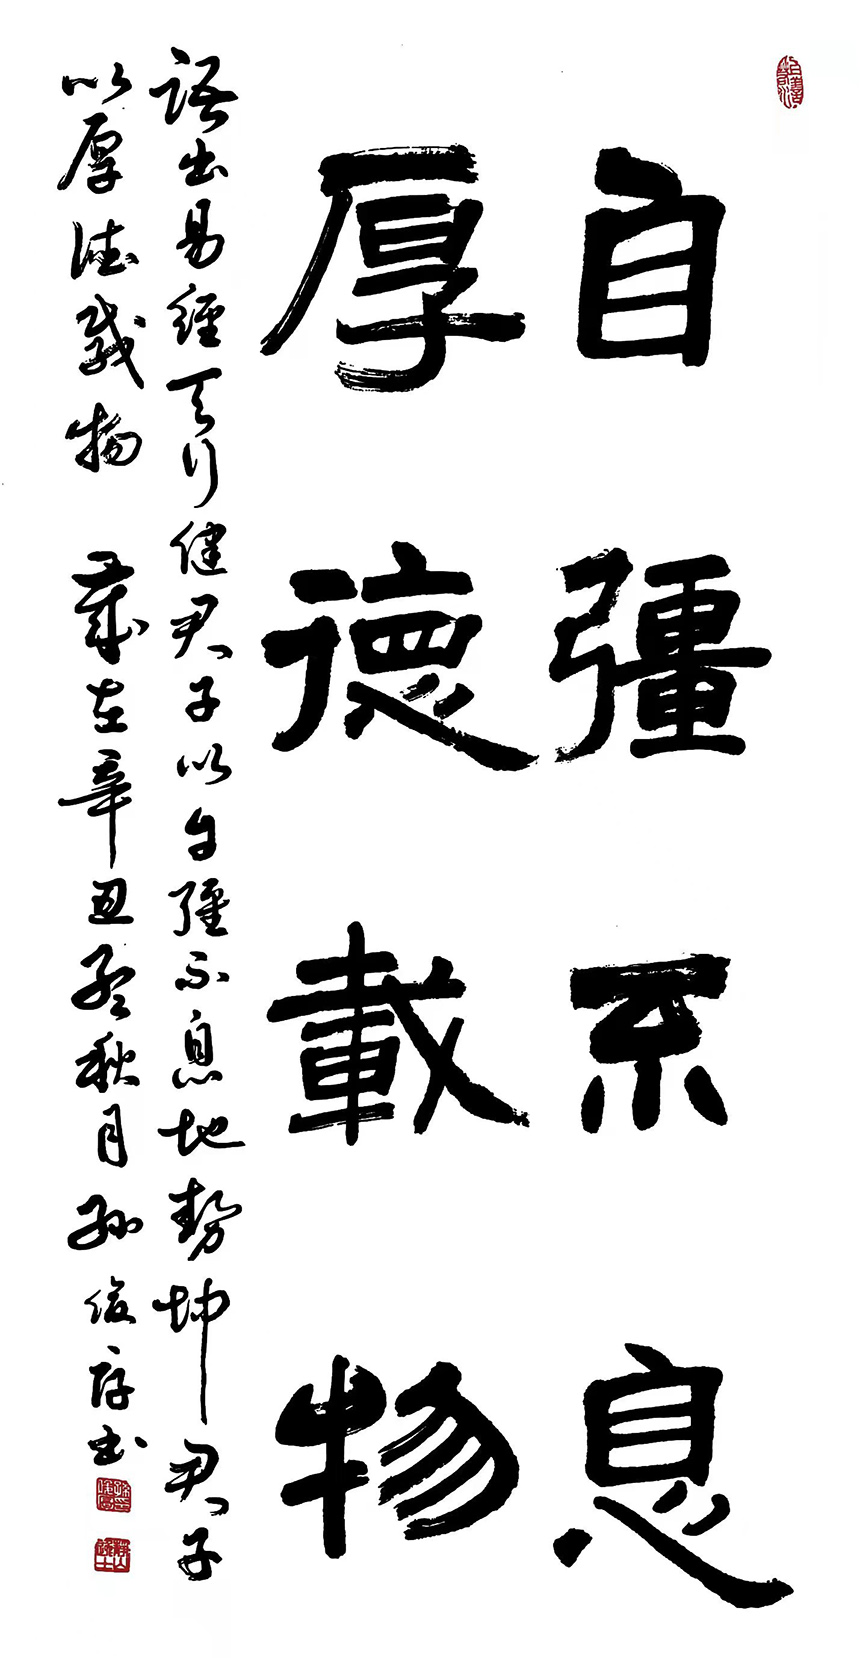 自彊不息
厚德載物
語出易經天行健君子以自彊不息地勢坤君子
以厚德載物 歲在辛丑孟秋月孫俊存書